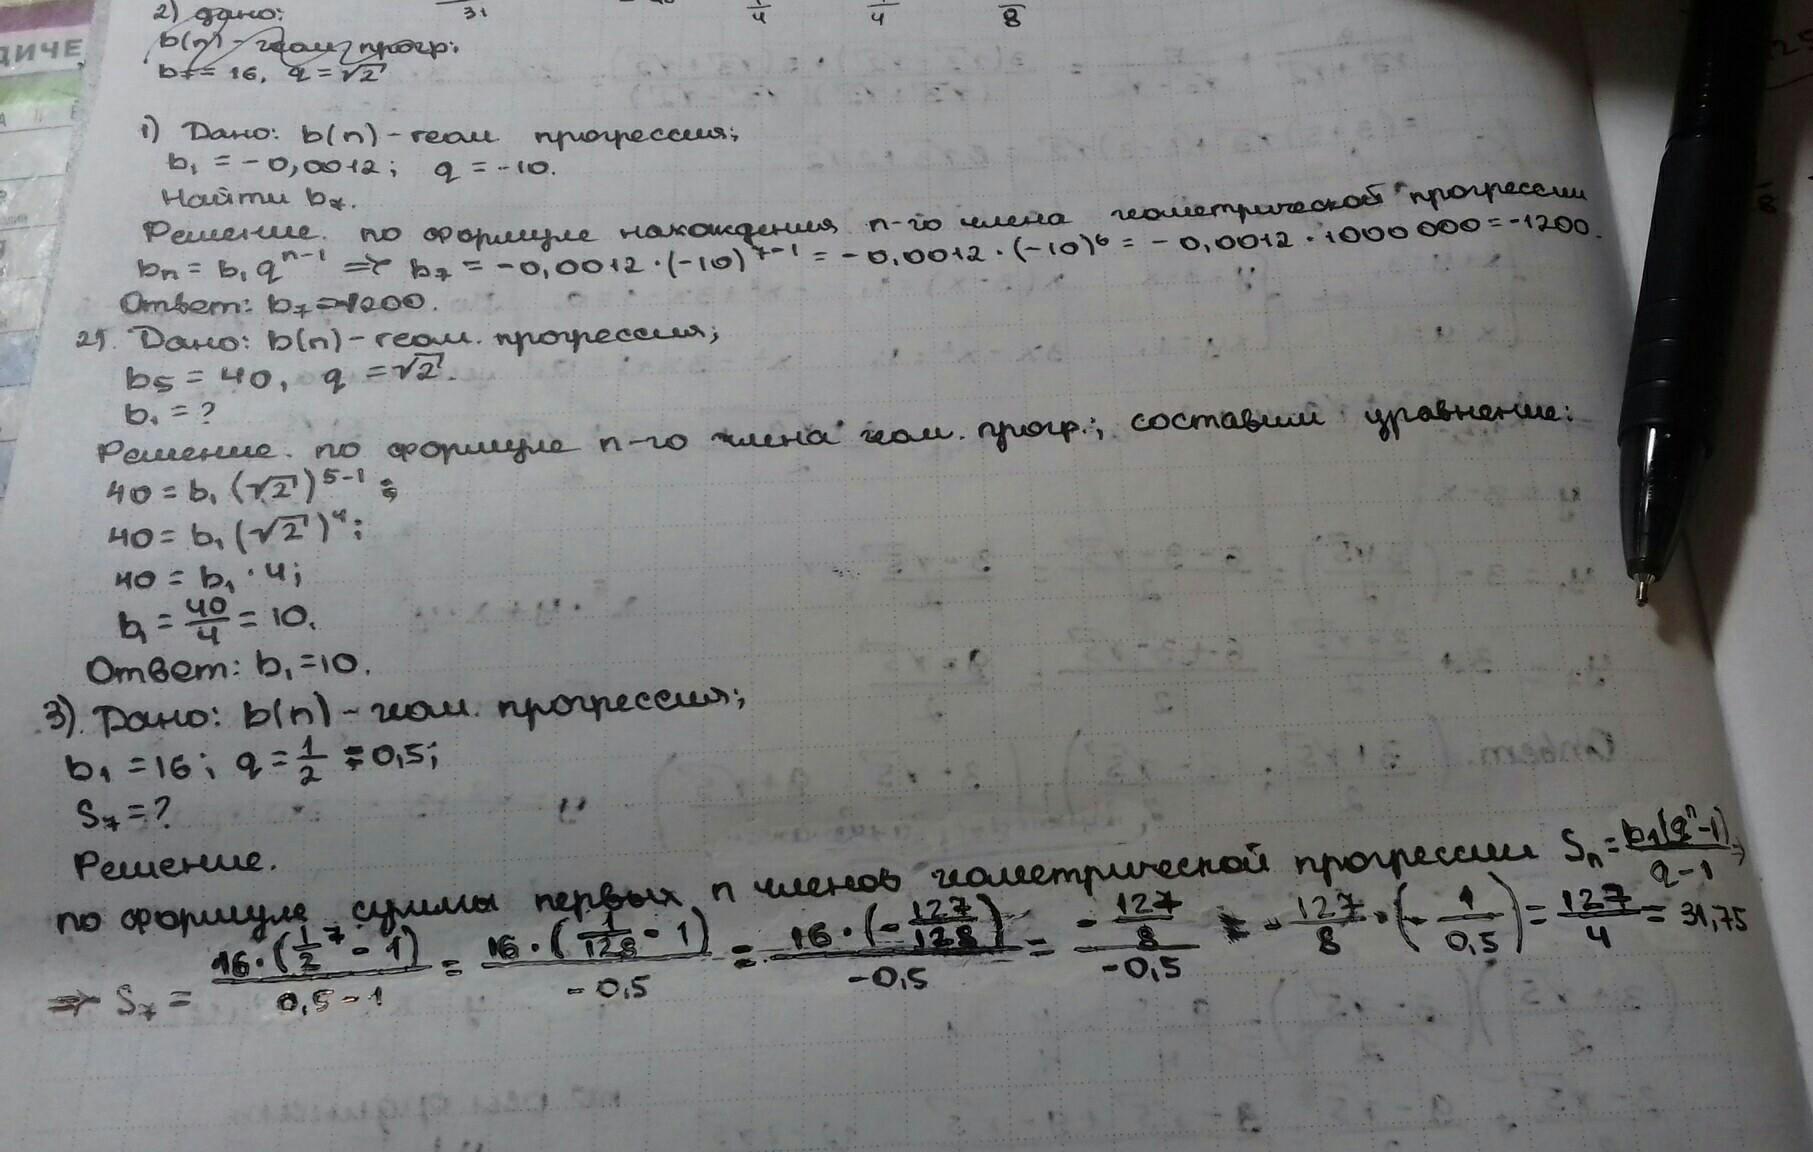 ДИЧЕ
31
1/4 1/4 /8
2) дано:
b(n) - геом прогр;
b₇ = 16, q = √2
1) Дано: b(n) - геом. прогрессия;
b₁ = -0,0012; q = -10.
Найти b₇.
Решение. по формуле нахождения n-го члена геометрической прогрессии
bₙ = b₁qⁿ⁻¹ => b₇ = -0,0012·(-10)⁷⁻¹ = -0,0012·(-10)⁶ = -0,0012·1000000 = -1200.
Ответ: b₇ = -1200.
2). Дано: b(n) - геом. прогрессия;
b₅ = 40, q = √2.
b₁ = ?
Решение. по формуле n-го члена геом. прогр.; составим уравнение:
40 = b₁(√2)⁵⁻¹;
40 = b₁(√2)⁴;
40 = b₁·4;
b₁ = 40/4 = 10.
Ответ: b₁=10.
3). Дано: b(n) - геом. прогрессия;
b₁ = 16; q = 1/2 = 0,5;
S₇ = ?
Решение.
по формуле суммы первых n членов геометрической прогрессии Sₙ = b₁(qⁿ-1)/q-1 =>
=> S₇ = 16·(1/2⁷ - 1)/0,5-1 = 16·(1/128 - 1)/-0,5 = 16·(-127/128)/-0,5 = -127/8/-0,5 = -127/8·(-1/0,5) = 127/4 = 31,75